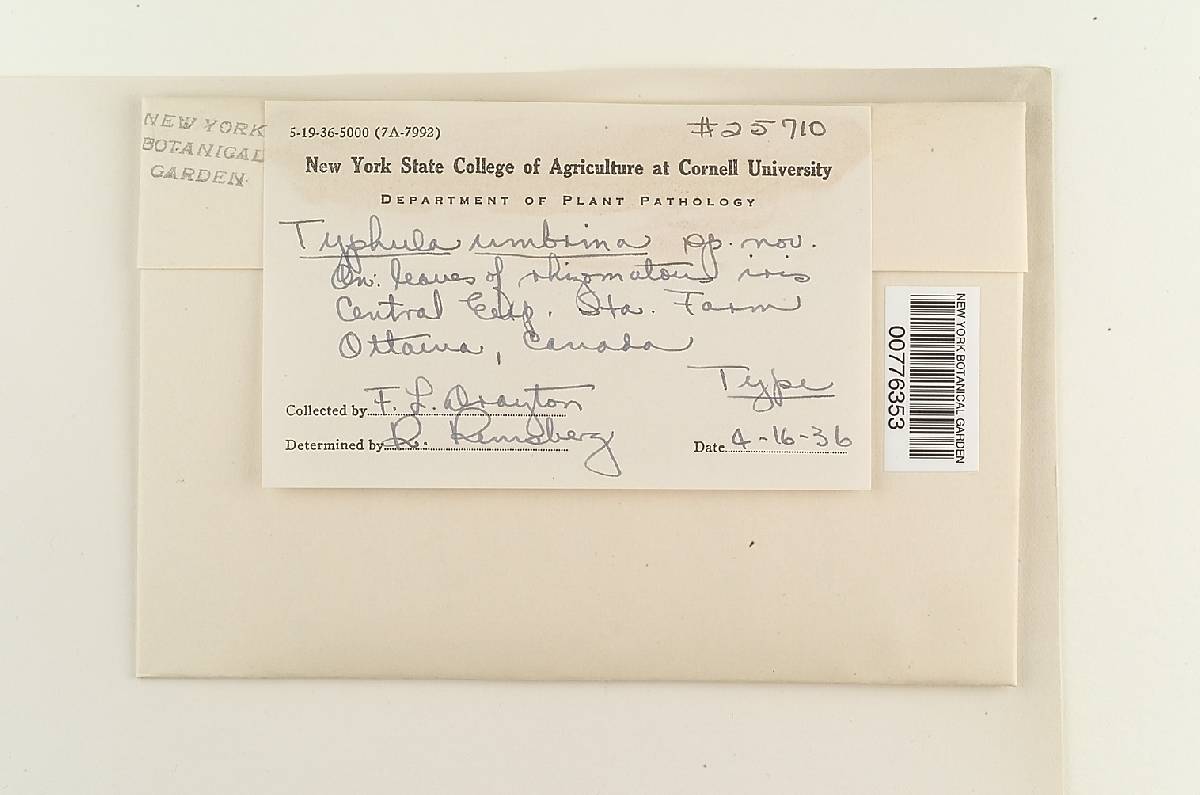 NEW YORK
BOTANICAL
GARDEN
5-19-36-5000 (7A-7992)
#25710
New York State College of Agriculture at Cornell University
DEPARTMENT OF PLANT PATHOLOGY
Typhula umbrina sp. nov.
On: leaves of rhizomatous iris
Central Exp. Sta. Farm
Ottawa, Canada
Type
Collected by F. L. Drayton
Determined by R. Remsberg
Date 4-16-36
NEW YORK BOTANICAL GARDEN
00776353